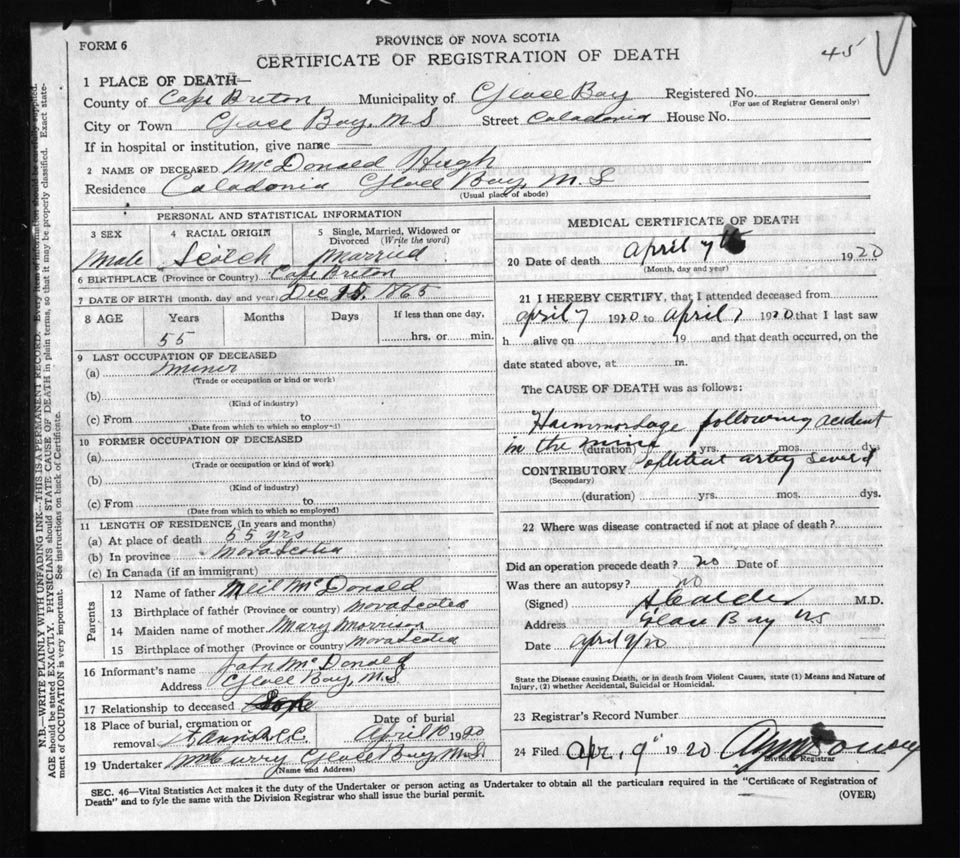 FORM 6
PROVINCE OF NOVA SCOTIA
CERTIFICATE OF REGISTRATION OF DEATH
45
1 PLACE OF DEATH—
County of Cape Breton Municipality of Glace Bay Registered No.
(For use of Registrar General only)
City or Town Glace Bay, N.S Street Caladonia House No.
If in hospital or institution, give name
2 NAME OF DECEASED McDonald Hugh
Residence Caladonia Glace Bay, N.S
(Usual place of abode)
PERSONAL AND STATISTICAL INFORMATION
3 SEX 4 RACIAL ORIGIN 5 Single, Married, Widowed or Divorced (Write the word)
Male Scotch Married
6 BIRTHPLACE (Province or Country) Cape Breton
7 DATE OF BIRTH (month, day and year) Dec 1865
8 AGE Years Months Days If less than one day,
55 hrs. or min.
9 LAST OCCUPATION OF DECEASED
(a) miner
(Trade or occupation or kind or work)
(b)
(Kind of industry)
(c) From to
(Date from which to which so employed)
10 FORMER OCCUPATION OF DECEASED
(a)
(Trade or occupation or kind of work)
(b)
(Kind of industry)
(c) From to
(Date from which to which so employed)
11 LENGTH OF RESIDENCE (In years and months)
(a) At place of death 55 yrs
(b) In province Nova Scotia
(c) In Canada (if an immigrant)
Parents
12 Name of father Neil McDonald
13 Birthplace of father (Province or country) Nova Scotia
14 Maiden name of mother Mary Morrison
15 Birthplace of mother (Province or country) Nova Scotia
16 Informant's name John McDonald
Address Glace Bay, N.S
17 Relationship to deceased
18 Place of burial, cremation or removal Date of burial
April 10 1920
19 Undertaker McCurry Glace Bay N.S
(Name and Address)
MEDICAL CERTIFICATE OF DEATH
20 Date of death April 7th 1920
(Month, day and year)
21 I HEREBY CERTIFY, that I attended deceased from
April 7 1920 to April 7 1920 that I last saw
h alive on 19 and that death occurred, on the
date stated above, at m.
The CAUSE OF DEATH was as follows:
Haemmorhage following acident
in the mine (duration) yrs. mos. dys.
CONTRIBUTORY artery severed
(Secondary)
(duration) yrs. mos. dys.
22 Where was disease contracted if not at place of death?
Did an operation precede death? no Date of
Was there an autopsy? no
(Signed) A Calder M.D.
Address Glace Bay NS
Date April 9/20
State the Disease causing Death, or in death from Violent Causes, state (1) Means and Nature of
Injury, (2) whether Accidental, Suicidal or Homicidal.
23 Registrar's Record Number
24 Filed Apr. 9" 1920
Division Registrar
SEC. 46—Vital Statistics Act makes it the duty of the Undertaker or person acting as Undertaker to obtain all the particulars required in the "Certificate of Registration of
Death" and to fyle the same with the Division Registrar who shall issue the burial permit.
(OVER)
N.B.—WRITE PLAINLY WITH UNFADING INK—THIS IS A PERMANENT RECORD. Every item of information should be carefully supplied.
AGE should be stated EXACTLY. PHYSICIANS should STATE CAUSE OF DEATH in plain terms, so that it may be properly classified. Exact statement of OCCUPATION is very important. See instructions on back of Certificate.